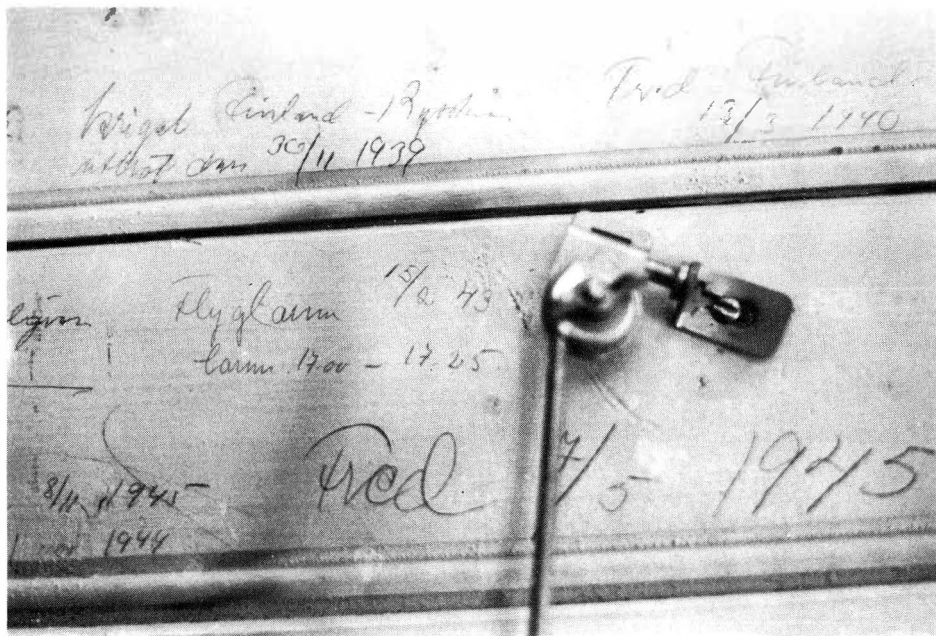 kriget Finland - Ryssland
utbröt den 30/11 1939
Fred Finland -
13/3 1940
Flyglarm 15/2 43
larm 17.00 - 17.25
Fred 7/5 1945
8/11 1945
1944